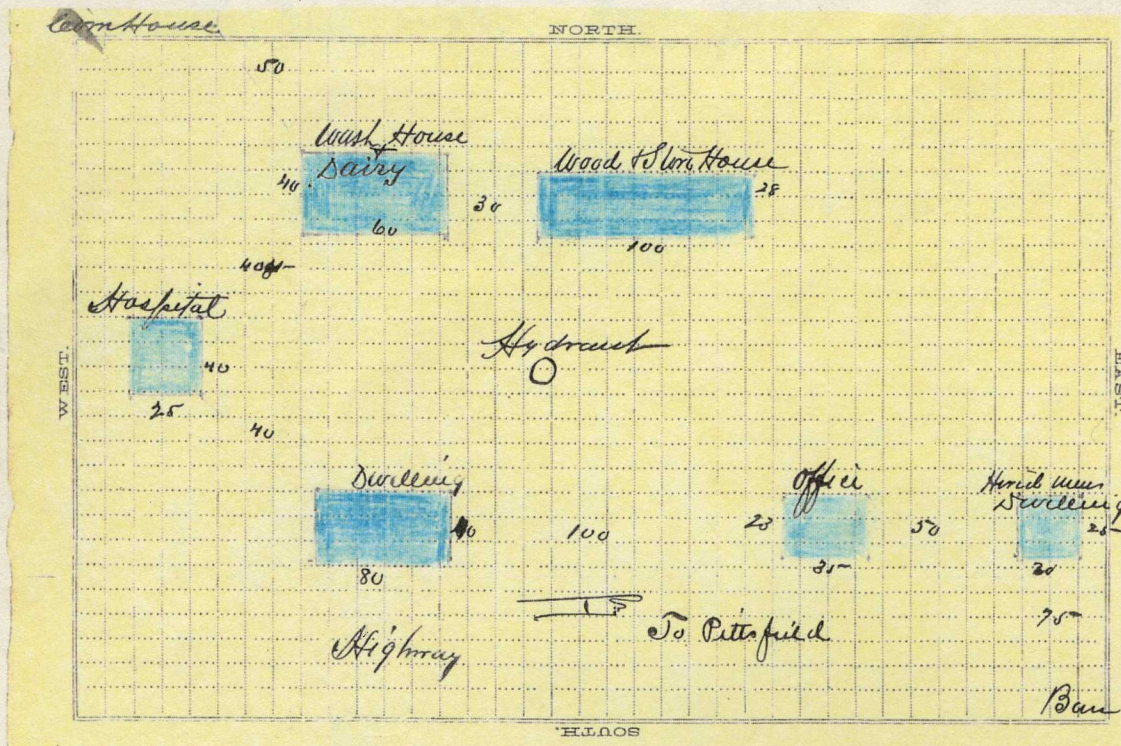 Corn House
NORTH.
50
Wash House
+
Dairy
40
60
30
Wood + Store House
28
100
40
Hospital
40
25
Hydrant
WEST.
EAST.
40
Dwelling
40
80
100
Office
23
35
50
Dwelling
25
30
To Pittsfield
75
Highway
SOUTH.